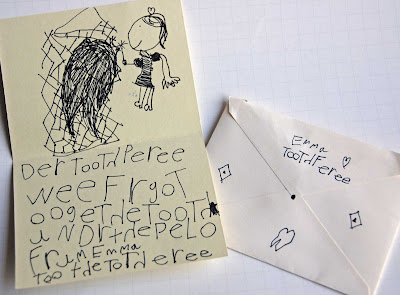 DerTooTdPeree
weeFrgoT
oogeTdeTooTd
uNDrtdePeLO
FruMEmma
TooTdeToTderee
Emma
TooTdFeree